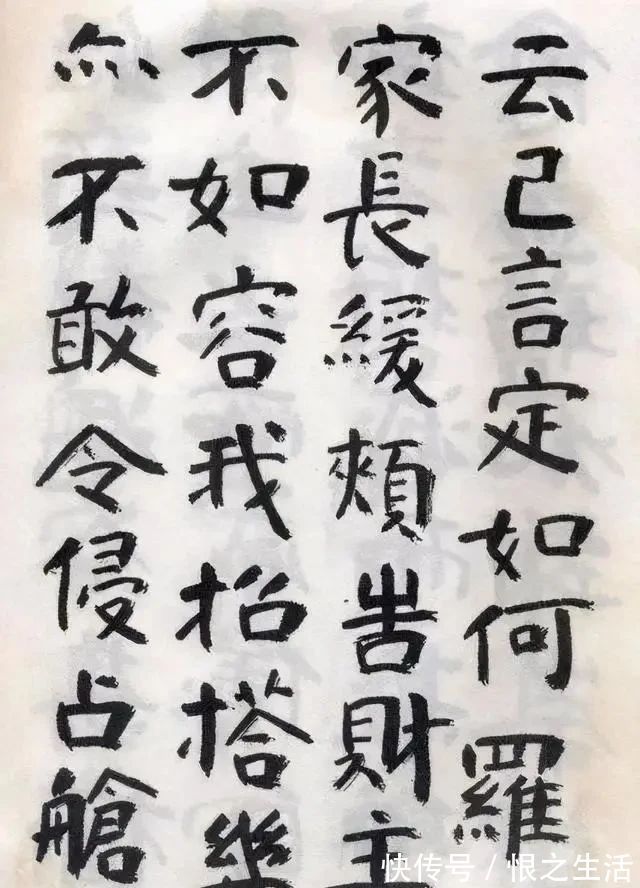 云已言定如何羅
家長緩頰告財主
不如容我招搭幾
亦不敢令侵占艙
快传号/恨之生活